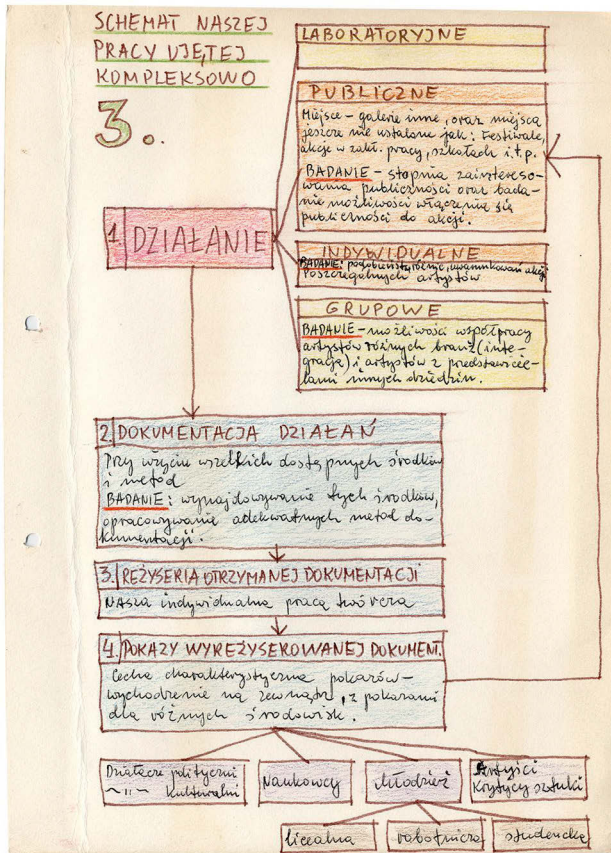 SCHEMAT NASZEJ
PRACY UJĘTEJ
KOMPLEKSOWO
3.
LABORATORYJNE
PUBLICZNE
Miejsce – galerie inne, oraz miejsca
jeszcze nie ustalone jak: Festiwale,
akcje w zakł. pracy, szkołach i.t.p.
BADANIE – stopnia zaintereso-
wania publiczności oraz bada-
nie możliwości włączenia się
publiczności do akcji.
1. DZIAŁANIE
INDYWIDUALNE
BADANIE: podobieństw, różnic, uwarunkowań akcji
Poszczególnych artystów
GRUPOWE
BADANIE – możliwości współpracy
artystów różnych branż (inte-
gracja) i artystów z przedstawicie-
lami innych dziedzin.
2. DOKUMENTACJA DZIAŁAŃ
Przy użyciu wszelkich dostępnych środków
i metod
BADANIE: wynajdowywanie tych środków,
opracowywanie adekwatnych metod do-
kumentacji.
3. REŻYSERIA OTRZYMANEJ DOKUMENTACJI
NASZA indywidualna praca twórcza
4. POKAZY WYREŻYSEROWANEJ DOKUMENT.
Cecha charakterystyczna pokazów –
wychodzenie na zewnątrz, z pokazami
dla różnych środowisk.
Działacze polityczni
~ıı~ kulturalni
Naukowcy
Młodzież
Artyści
Krytycy sztuki
licealna
robotnicza
studencka